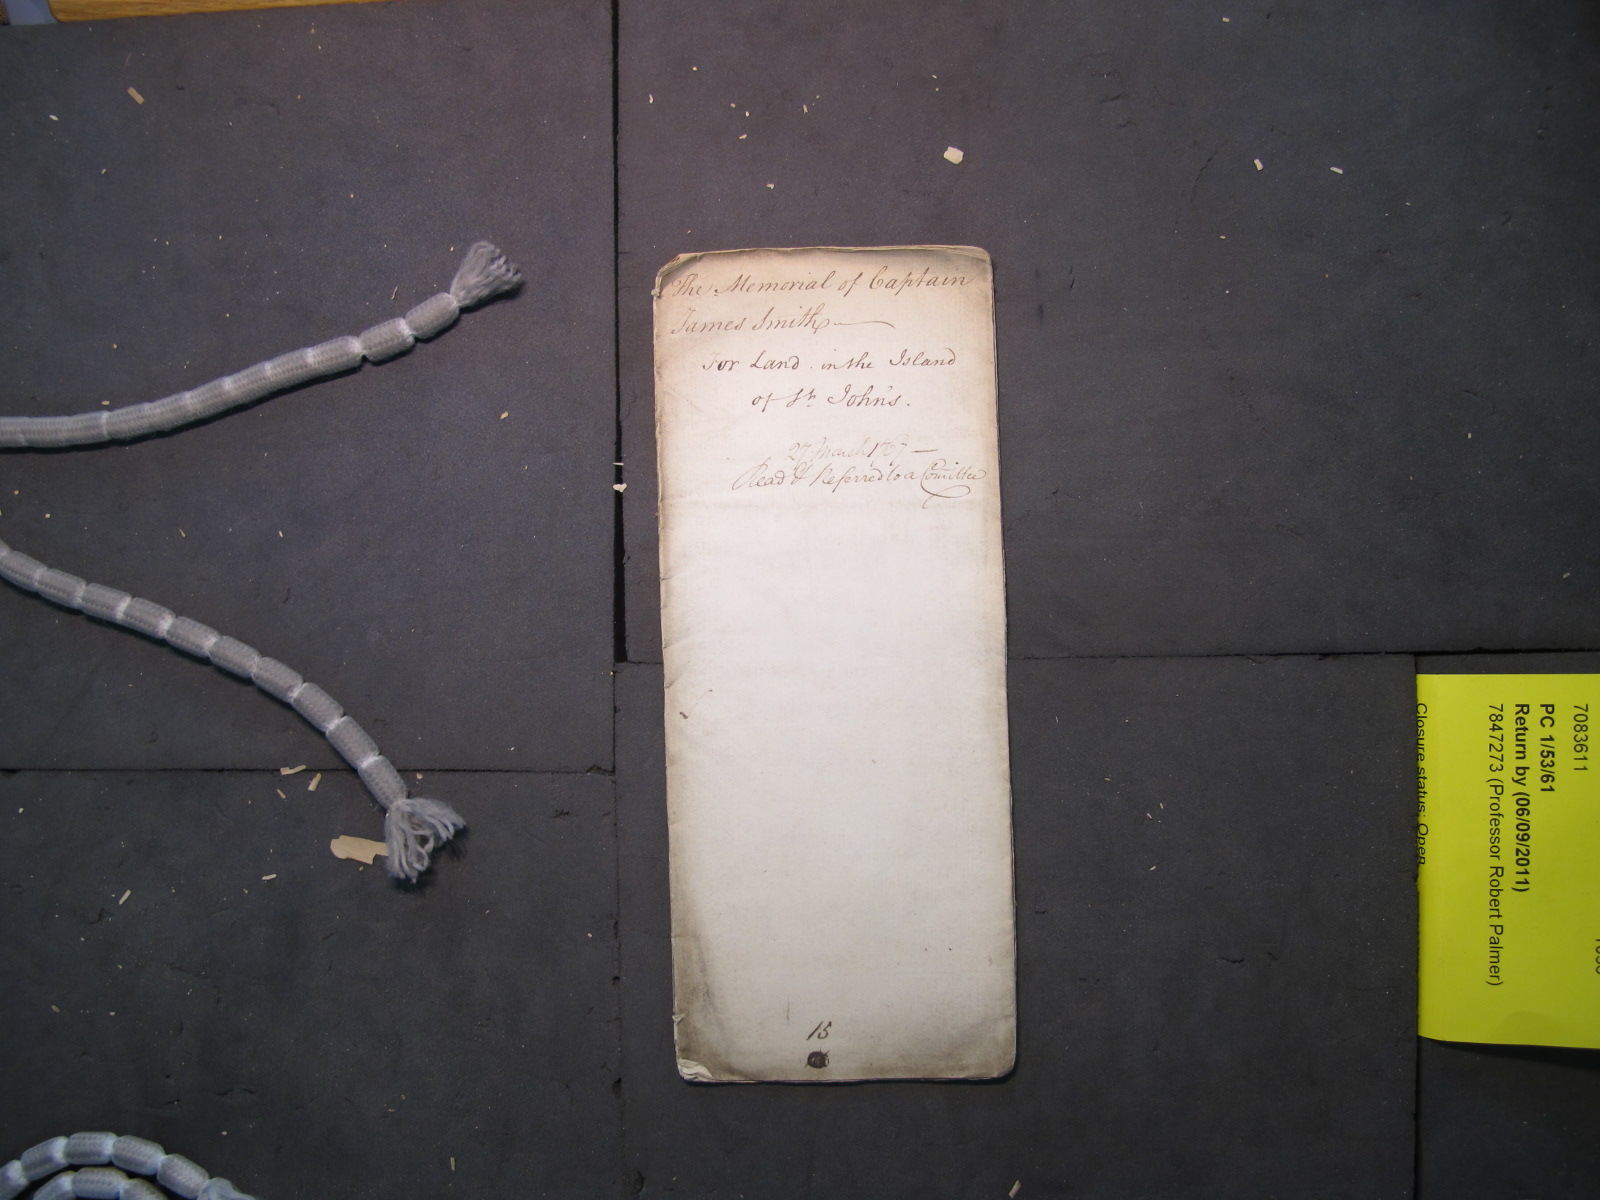 The Memorial of Captain
James Smith
For Land in the Island
of St. John's.
27 March 1767
Read & Referred to a Comittee
15
7083611
PC 1/53/61
Return by (06/09/2011)
7847273 (Professor Robert Palmer)
Closure status: Open